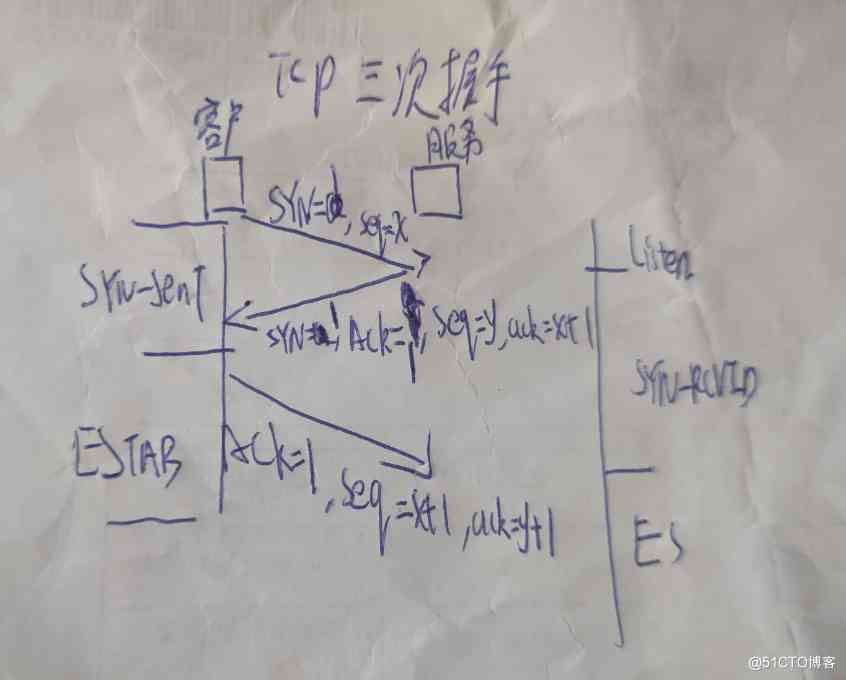 TCP 三次握手
客户
服务
SYN=1, seq=x
Listen
SYN-SENT
SYN=1, ACK=1, seq=y, ack=x+1
SYN-RCVD
ESTAB
ACK=1, seq=x+1, ack=y+1
ES
@51CTO博客